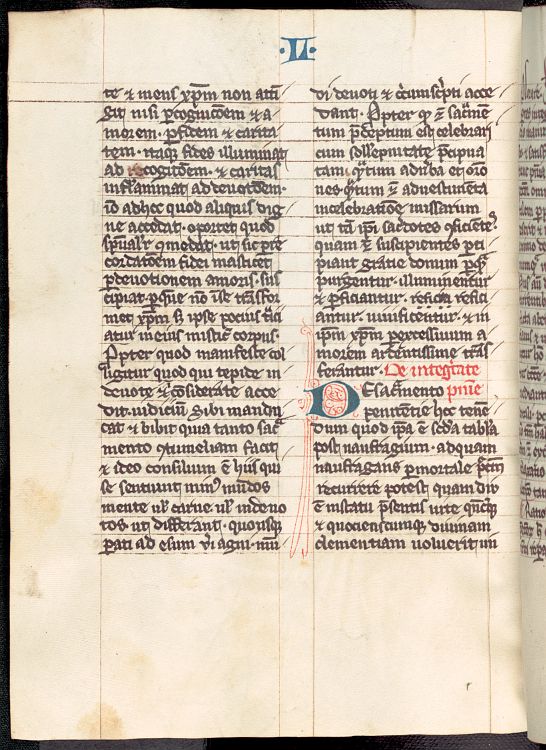 ·LI·
te & mens xp̄m non attī
git nisi ꝑ cogitc̄oem & a
morem · ꝑ fidem & carita
tem · itaqꝫ fides illuminat
ad recogitōem · & caritas
inflammat ad deuotōem·
iō ad hec quod aliquis dig
ne accedat · oportet quod
sp̄ualr̄ ꝯmedat · ut sic ꝑ re
cordatōnem fidei masticet
ꝑ deuotionem amoris · sus
cipiat ꝑ que nō ī se trāsfor
met xp̄m sꝫ ipse pocius t̄ici
atur in eius mistic̄ corpus·
Ꝓpter quod manifeste col
ligitur quod qui tepide in
deuote & ꝯsiderate acce
dit · iudiciū sibi manduc
cat & bibit quia tanto sac̄
mento ꝯtumeliam facit
& ideo consilium ē hijs qui
se sentiunt minꝰ mūdos
mente ul̄ carne ul̄ indeuo
tos · ut differant · quousqꝫ
ꝑati ad esum ūi agni · mū
di deuoti & cͥcumscripti acce
dant · Ꝓpter qͥ ē sac̄men
tum p̄ceptum est celebrari
cum sollempnitate p̄cipua
tam qͣntum ad ūba et orō
nes qͣntum ē ad uestimenta
in celebratiōe missarum
ut tā ipī sacerdotes ꝯficiētes
quam ē suscipientes ꝑti
cipiant gratie donum ꝑ qͦ
purgentur · illuminentur
& ꝑficiantur · refici
antur · uiuificentur · & in
ip̄m xp̄m ꝑ excessiuum a
morem ardentissime trās
ferantur · De integͥtate
De sac̄mento pn̄ie
penitentie hec tenē
dum quod ip̄a ē sc̄da tabl̄a
post naufragium · ad quam
naufragans ꝑ mortale pc̄m
recurrere potest quam diu
ē in statu p̄sentis uite qn̄cūqꝫ
& quocienscumqꝫ diuinam
clementiam uoluerit im